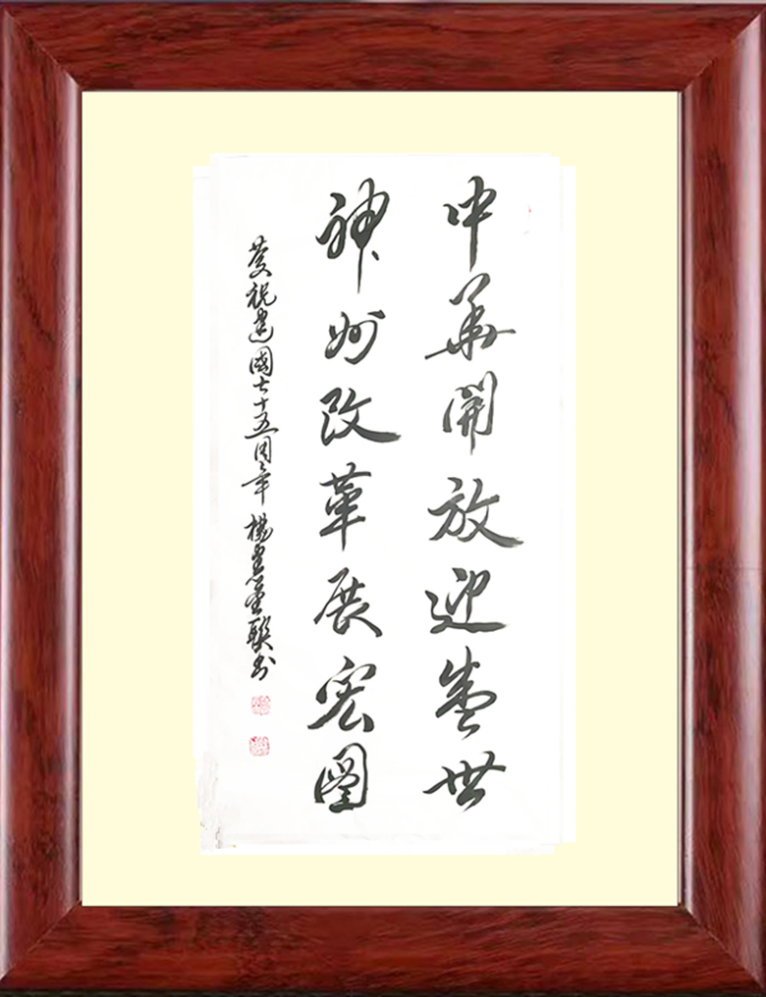 中華開放迎盛世
神州改革展宏圖
慶祝建國七十五周年 楊 聯书